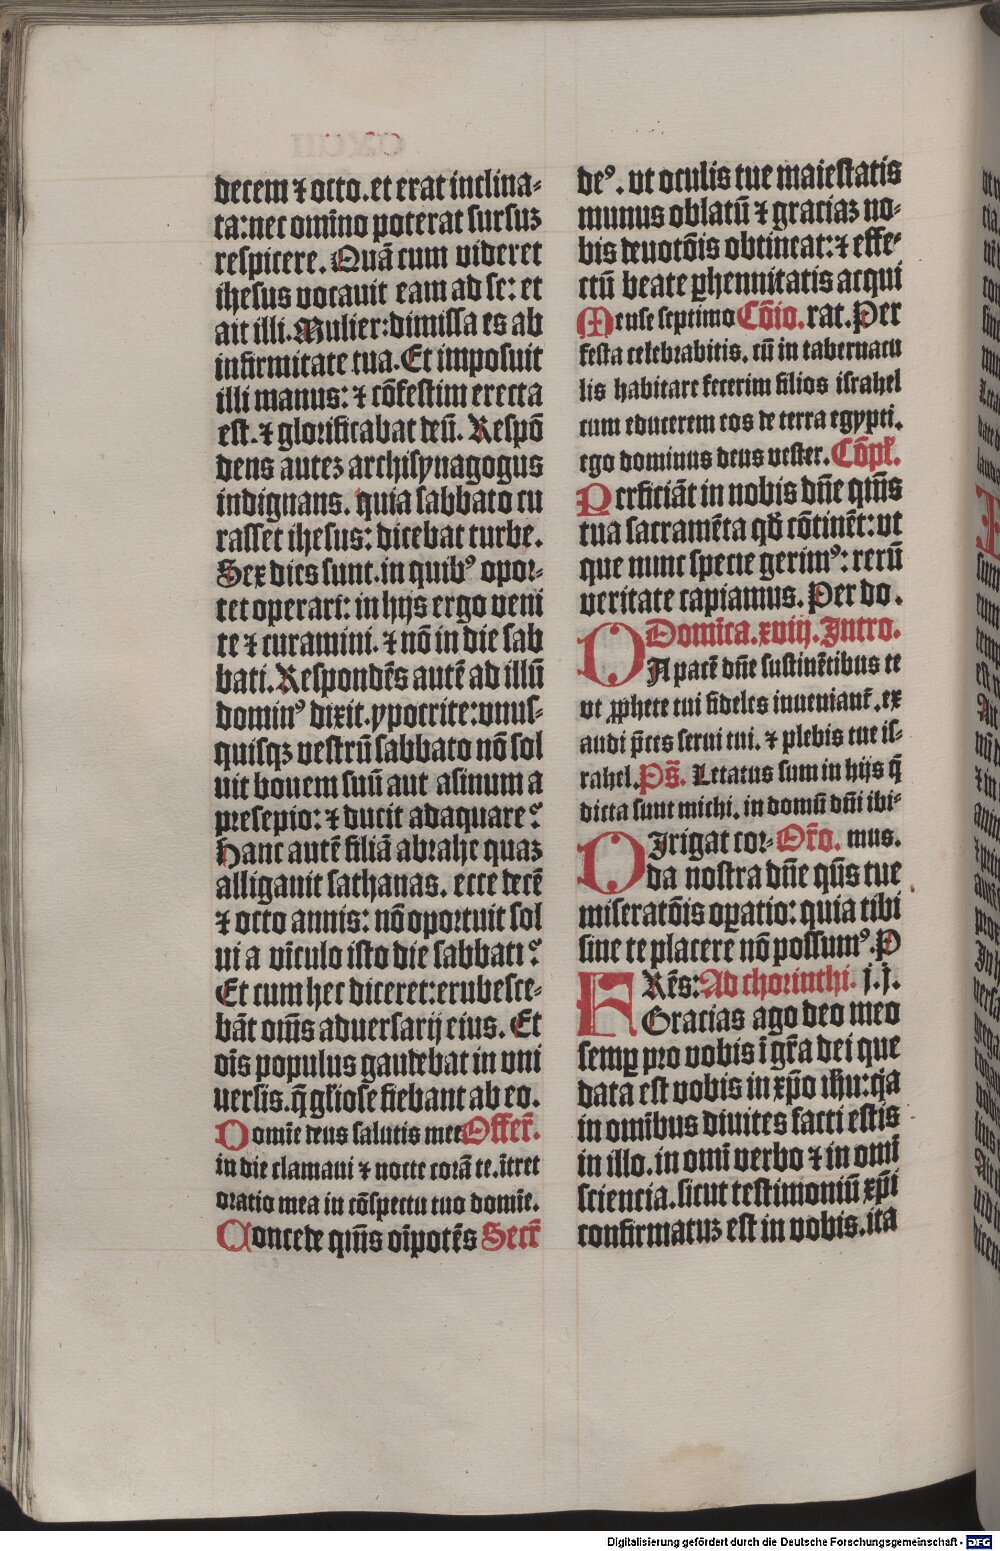 decem ⁊ octo. et erat inclina⸗
ta: nec om̄ino poterat sursuꝫ
respicere. Quā cum videret
ihesus vocauit eam ad se: et
ait illi. Mulier: dimissa es ab
infirmitate tua. Et imposuit
illi manus: ⁊ cōfestim erecta
est. ⁊ glorificabat deū. Respō
dens auteꝫ archisynagogus
indignans. quia sabbato cu
rasset ihesus: dicebat turbe.
Sex dies sunt. in quibꝰ opor⸗
tet operari: in hijs ergo veni
te ⁊ curamini. ⁊ nō in die sab
bati. Respondēs autē ad illū
dominꝰ dixit. ypocrite: vnus⸗
quisqꝫ vestrū sabbato nō sol
uit bouem suū aut asinum a
presepio: ⁊ ducit adaquare?
Hanc autē filiā abrahe quaꝫ
alligauit sathanas. ecce decē
⁊ octo annis: nō oportuit sol
ui a vīculo isto die sabbati?
Et cum hec diceret: erubesce⸗
bāt om̄s aduersarij eius. Et
oīs populus gaudebat in vni
uersis. q̄ gl̄iose fiebant ab eo.
Domīe deus salutis mee Offer̄.
in die clamaui ⁊ nocte corā te. ītret
oratio mea in cōspectu tuo domīe.
Concede qm̄s oīpotēs Secr̄
deꝰ. vt oculis tue maiestatis
munus oblatū ⁊ graciaꝫ no⸗
bis deuotōis obtineat: ⁊ effe⸗
ctū beate ꝑhennitatis acqui
Mense septimo Cōio. rat. Per
festa celebrabitis. cū in tabernacu
lis habitare fecerim filios israhel
cum educerem eos de terra egypti.
ego dominus deus vester. Cōpl̄.
Perficiāt in nobis dn̄e qm̄s
tua sacramēta qd̄ cōtinēt: vt
que nunc specie gerimꝰ: rerū
veritate capiamus. Per do.
Domīca. xviij. Intro.
DA pacē dn̄e sustinētibus te
vt ꝓphete tui fideles inueniant̄. ex
audi p̄ces serui tui. ⁊ plebis tue is⸗
rahel. Ps̄. Letatus sum in hijs q̄
dicta sunt michi. in domū dn̄i ibi⸗
DIrigat cor⸗ Or̄o. mus.
da nostra dn̄e qs̄ tue
miseratōis oꝑatio: quia tibi
sine te placere nō possumꝰ. P
FRēs: Ad chorinthi. j. j.
Gracias ago deo meo
semꝑ pro vobis ī gr̄a dei que
data est vobis in xp̄o ih̄u: qa̅
in omībus diuites facti estis
in illo. in omī verbo ⁊ in omī
sciencia. sicut testimoniū xp̄i
confirmatuꝫ est in vobis. ita
Digitalisierung gefördert durch die Deutsche Forschungsgemeinschaft - DFG